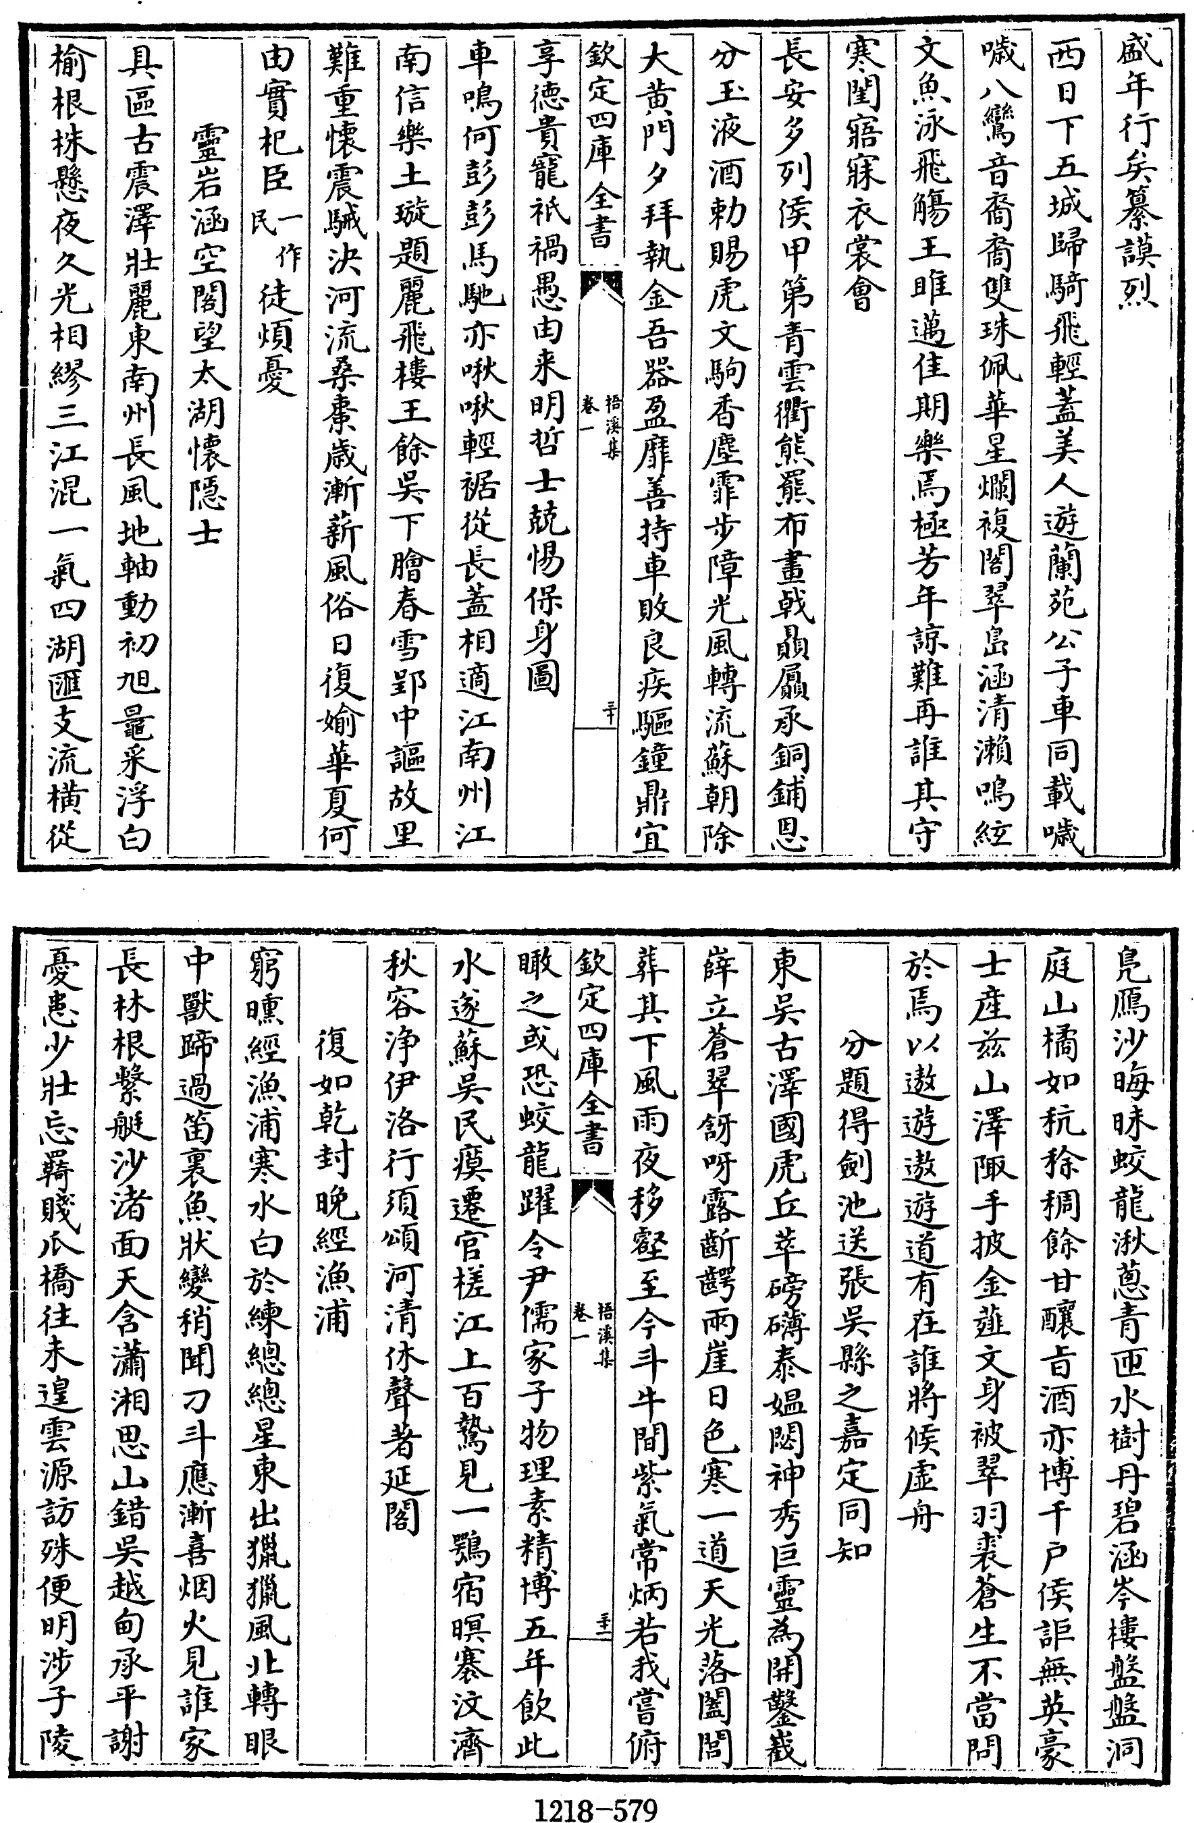 盛年行矣纂謨烈
西日下五城歸騎飛輕蓋美人遊蘭苑公子車同載噦
噦八鸞音裔裔雙珠佩華星爛複閣翠島涵清瀨鳴絃
文魚泳飛觴王雎邁佳期樂焉極芳年諒難再誰其守
寒閨寤寐衣裳會
長安多列侯甲第青雲衢熊羆布畫戟贔屭承銅鋪恩
分玉液酒勅賜虎文駒香塵霏步障光風轉流蘇朝除
大黄門夕拜執金吾器盈靡善持車敗良疾驅鐘鼎宜
欽定四庫全書
梧溪集
卷一
三十
享德貴寵祇禍愚由来明哲士兢惕保身圖
車鳴何彭彭馬馳亦啾啾輕裾從長蓋相適江南州江
南信樂土璇題麗飛樓王餘吳下膾春雪郢中謳故里
難重懷震駴決河流桑棗歳漸薪風俗日復媮華夏何
由實杞臣一作民徒煩憂
靈岩涵空閣望太湖懷隱士
具區古震澤壯麗東南州長風地軸動初旭鼂采浮白
榆根株懸夜久光相繆三江混一氣四湖匯支流横從
鳬鴈沙晦昧蛟龍湫蔥青匝水樹丹碧涵岑樓盤盤洞
庭山橘如秔稌稠餘甘釀旨酒亦博千户侯詎無英豪
士産兹山澤陬手披金薤文身被翠羽裘蒼生不當問
於焉以遨遊遨遊道有在誰將候虚舟
分題得劍池送張吳縣之嘉定同知
東吳古澤國虎丘萃磅礴泰媪閟神秀巨靈為開鑿巀
嶭立蒼翠谺呀露齗齶兩崖日色寒一道天光落闔閭
葬其下風雨夜移壑至今斗牛間紫氣常炳若我嘗俯
欽定四庫全書
梧溪集
卷一
三十一
瞰之或恐蛟龍躍令尹儒家子物理素精博五年飲此
水遂蘇吳民瘼遷官槎江上百鷙見一鶚宿暝褰汶濟
秋容浄伊洛行須頌河清休聲著延閣
復如乾封晚經漁浦
窮曛經漁浦寒水白於練總總星東出獵獵風北轉眼
中獸蹄過笛裏魚狀變稍聞刁斗應漸喜烟火見誰家
長林根繫艇沙渚面天含瀟湘思山錯吳越甸承平謝
憂患少壯忘羇賤爪橋往未遑雲源訪殊便明涉子陵
1218-579